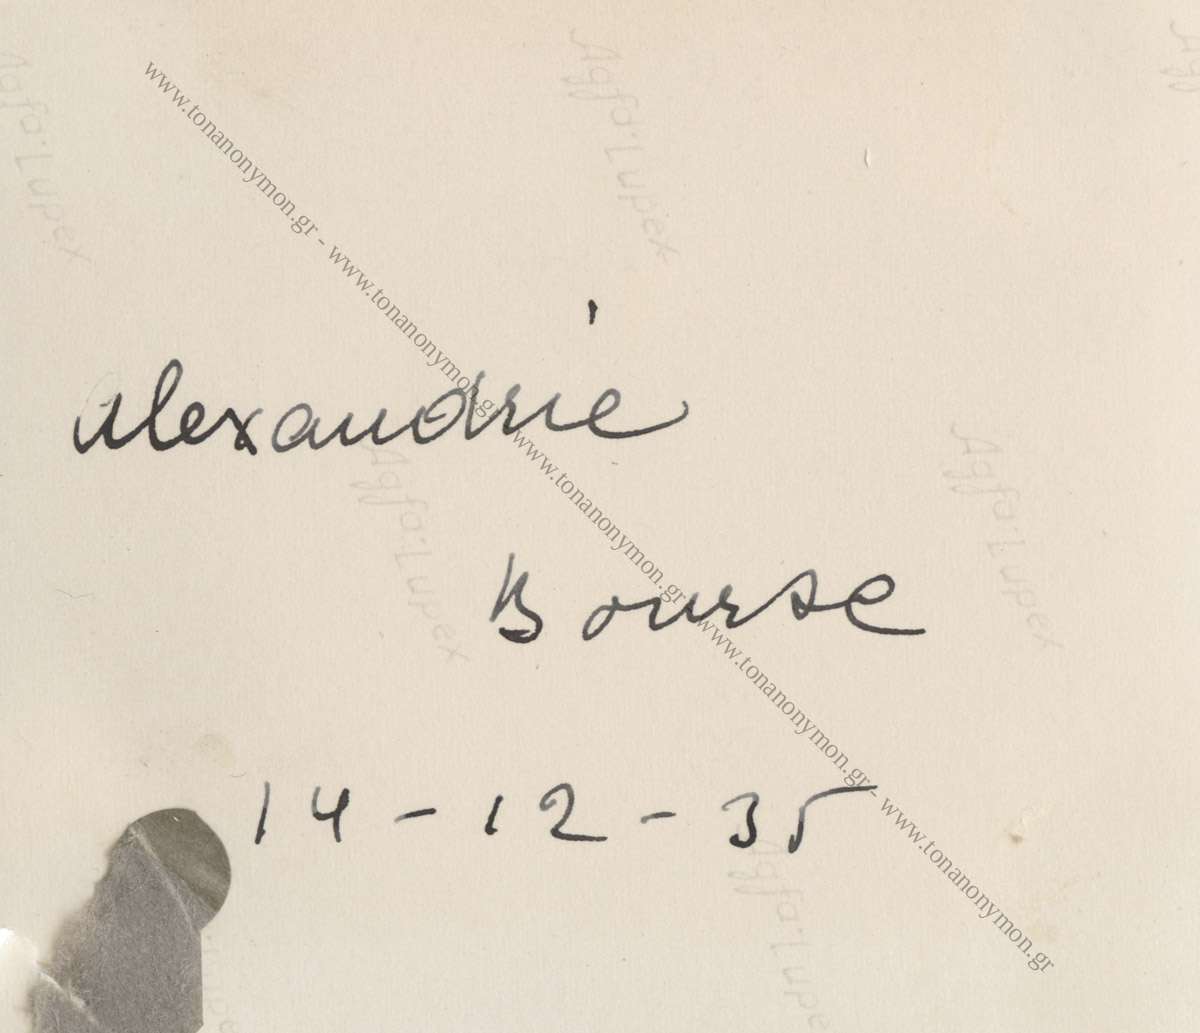 www.tonanonymon.gr - www.tonanonymon.gr - www.tonanonymon.gr - www.tonanonymon.gr - www.tonanonymon.gr
Agfa-Lupex
Agfa-Lupex
Agf
Alexandrie
Agfa-Lupex
Agfa-Lupex
Bourse
14-12-35
Agfa-Lupex